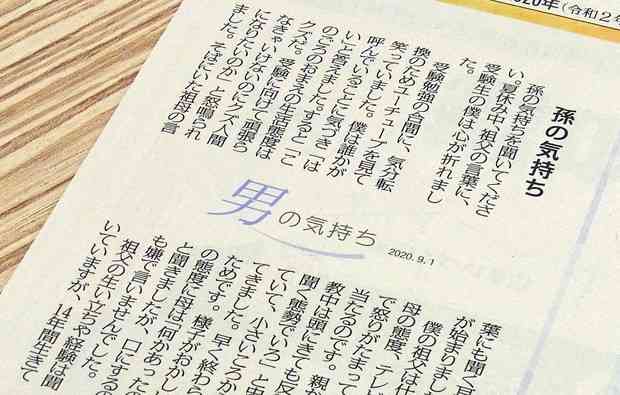 2020年(令和2年
孫の気持ち
孫の気持ちを聞いてくださ
い。夏休み中、祖父の言葉に、
受験生の僕は心が折れまし
た。
受験勉強の合間に、気分転
換のためユーチューブを見て
笑っていました。僕は誰かが
呼んでいることに気づき「は
い」と答えました。すると「こ
のごろのおまえの生活態度は
クズだ。受験に向けて頑張ら
なきゃいけないのにクズ人間
になりたいのか」と怒鳴られ
ました。そばにいた祖母の言
男の気持ち
2020.9.1
葉にも聞く
が始まりまし
僕の祖父は仕
母の態度、テレ
で怒りがたまって
当たるのです。親
教中は頭にきても反
聞く態勢でいろ」と
ていて、小さいころか
てきました。早く終わら
ためです。様子がおかし
の態度に母は「何があった
と聞きましたが、口にするの
も嫌で言いませんでした。
祖父の生い立ちや経験は聞
いていますが、14年間生きて